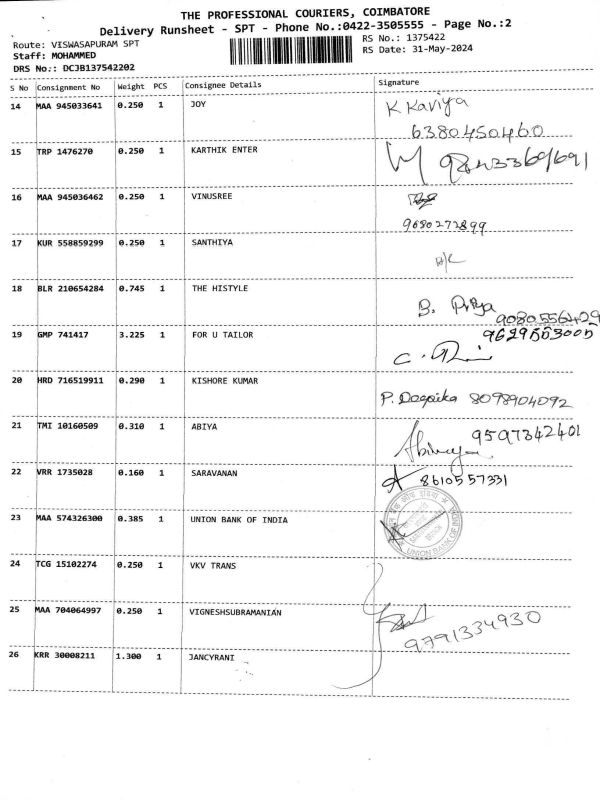 THE PROFESSIONAL COURIERS, COIMBATORE
Delivery Runsheet - SPT - Phone No.:0422-3505555 - Page No.:2
Route: VISWASAPURAM SPT
RS No.: 1375422
Staff: MOHAMMED
RS Date: 31-May-2024
DRS No.: DCJB137542202
S No Consignment No Weight PCS Consignee Details Signature
14 MAA 945033641 0.250 1 JOY K Kaviya
6380450460
15 TRP 1476270 0.250 1 KARTHIK ENTER 9843369691
16 MAA 945036462 0.250 1 VINUSREE
9680272899
17 KUR 558859299 0.250 1 SANTHIYA
H/C
18 BLR 210654284 0.745 1 THE HISTYLE B. Priya
9080556429
19 GMP 741417 3.225 1 FOR U TAILOR 9629553005
20 HRD 716519911 0.290 1 KISHORE KUMAR P. 8098904092
21 TMI 10160509 0.310 1 ABIYA 9597342401
22 VRR 1735028 0.160 1 SARAVANAN 8610557331
23 MAA 574326300 0.385 1 UNION BANK OF INDIA
UNION BANK OF INDIA
24 TCG 15102274 0.250 1 VKV TRANS
25 MAA 704064997 0.250 1 VIGNESHSUBRAMANIAN
9791334930
26 KRR 30008211 1.300 1 JANCYRANI